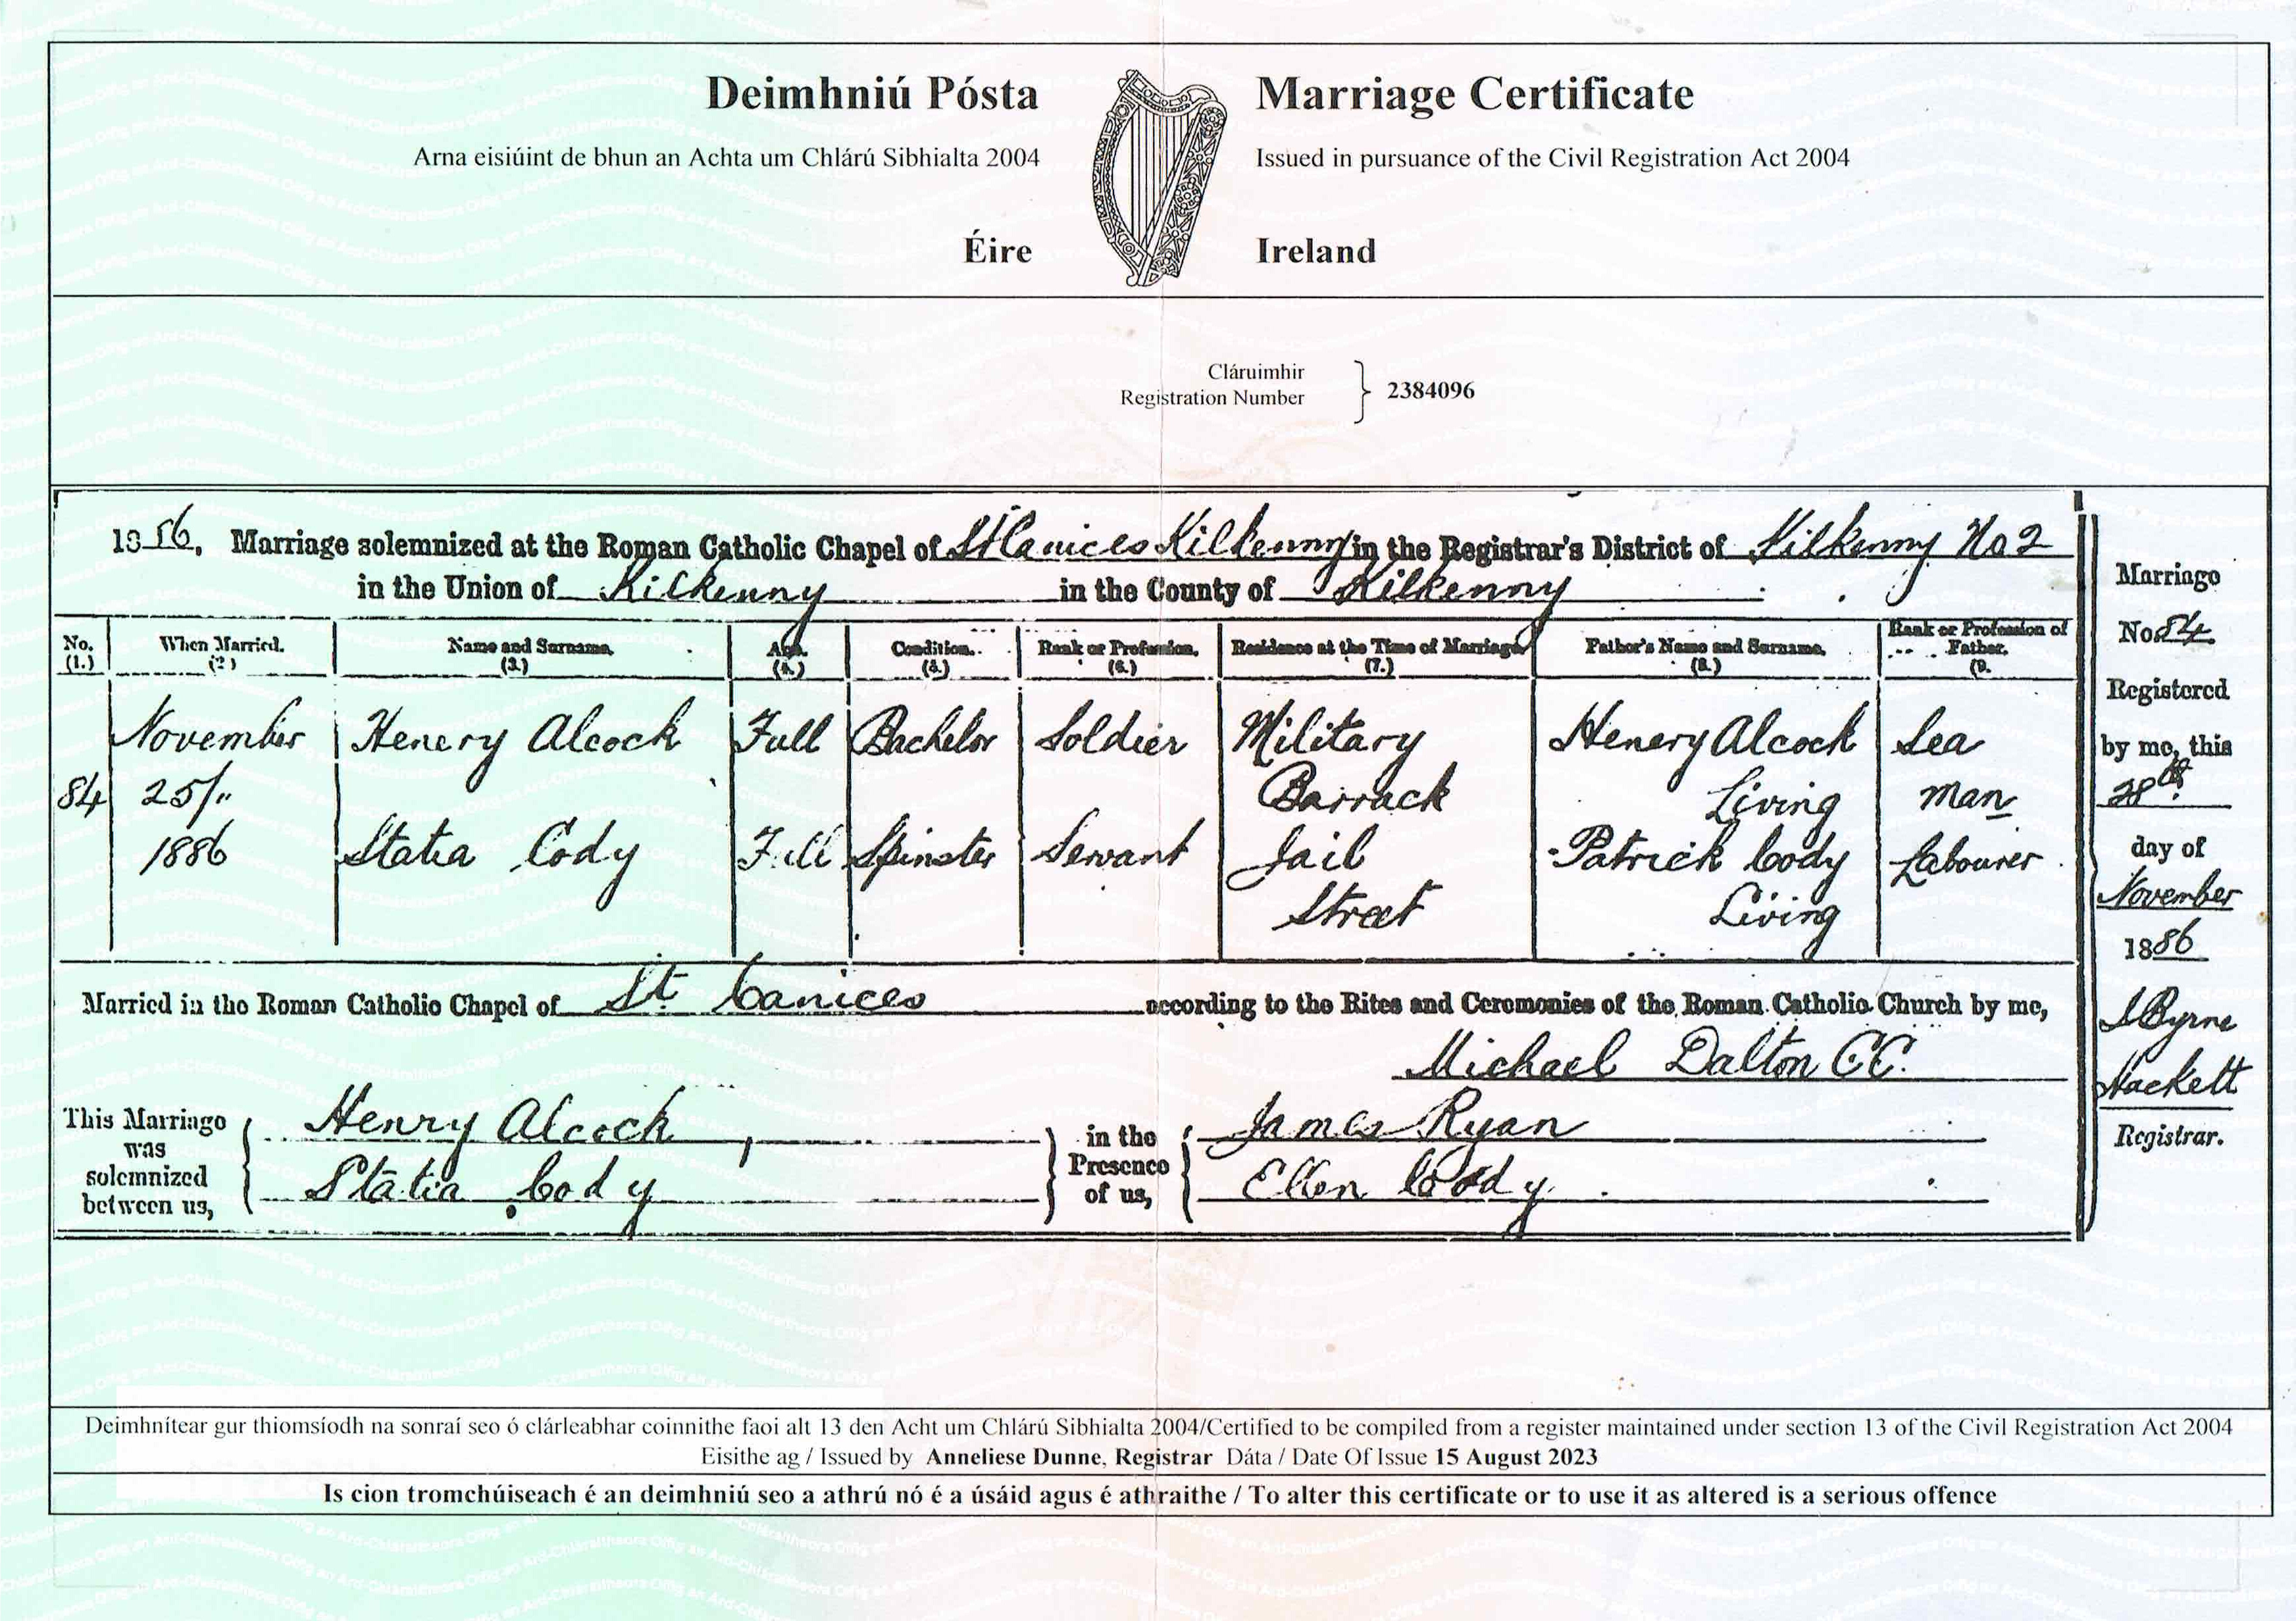 Deimhniú Pósta
Marriage Certificate
Arna eisiúint de bhun an Achta um Chlárú Sibhialta 2004
Issued in pursuance of the Civil Registration Act 2004
Éire
Ireland
Cláruimhir
Registration Number
2384096
1886. Marriage solemnized at the Roman Catholic Chapel of St Canices Kilkenny in the Registrar's District of Kilkenny No 2
in the Union of Kilkenny in the County of Kilkenny
No. (1.) When Married. (2) Name and Surname. (3.) Age. (4.) Condition. (5.) Rank or Profession. (6.) Residence at the Time of Marriage. (7.) Father's Name and Surname. (8.) Rank or Profession of Father. (9.
November Henery Alcock Full Bachelor Soldier Military Henery Alcock Sea
84 25/" Barrack Living man
1886 Statia Cody Full Spinster Servant Jail Patrick Cody Labourer
Street Living
Married in the Roman Catholic Chapel of St Canices according to the Rites and Ceremonies of the Roman Catholic Church by me,
Michael Dalton CC.
This Marriage was solemnized between us,
Henry Alcock
Statia Cody
in the Presence of us,
James Ryan
Ellen Cody
Marriage
No 84
Registered
by me, this
28th
day of
November
1886
Byrne
Hackett
Registrar.
Deimhnítear gur thiomsíodh na sonraí seo ó clárleabhar coinnithe faoi alt 13 den Acht um Chlárú Sibhialta 2004/Certified to be compiled from a register maintained under section 13 of the Civil Registration Act 2004
Eisithe ag / Issued by Anneliese Dunne, Registrar Dáta / Date Of Issue 15 August 2023
Is cion tromchúiseach é an deimhniú seo a athrú nó é a úsáid agus é athraithe / To alter this certificate or to use it as altered is a serious offence